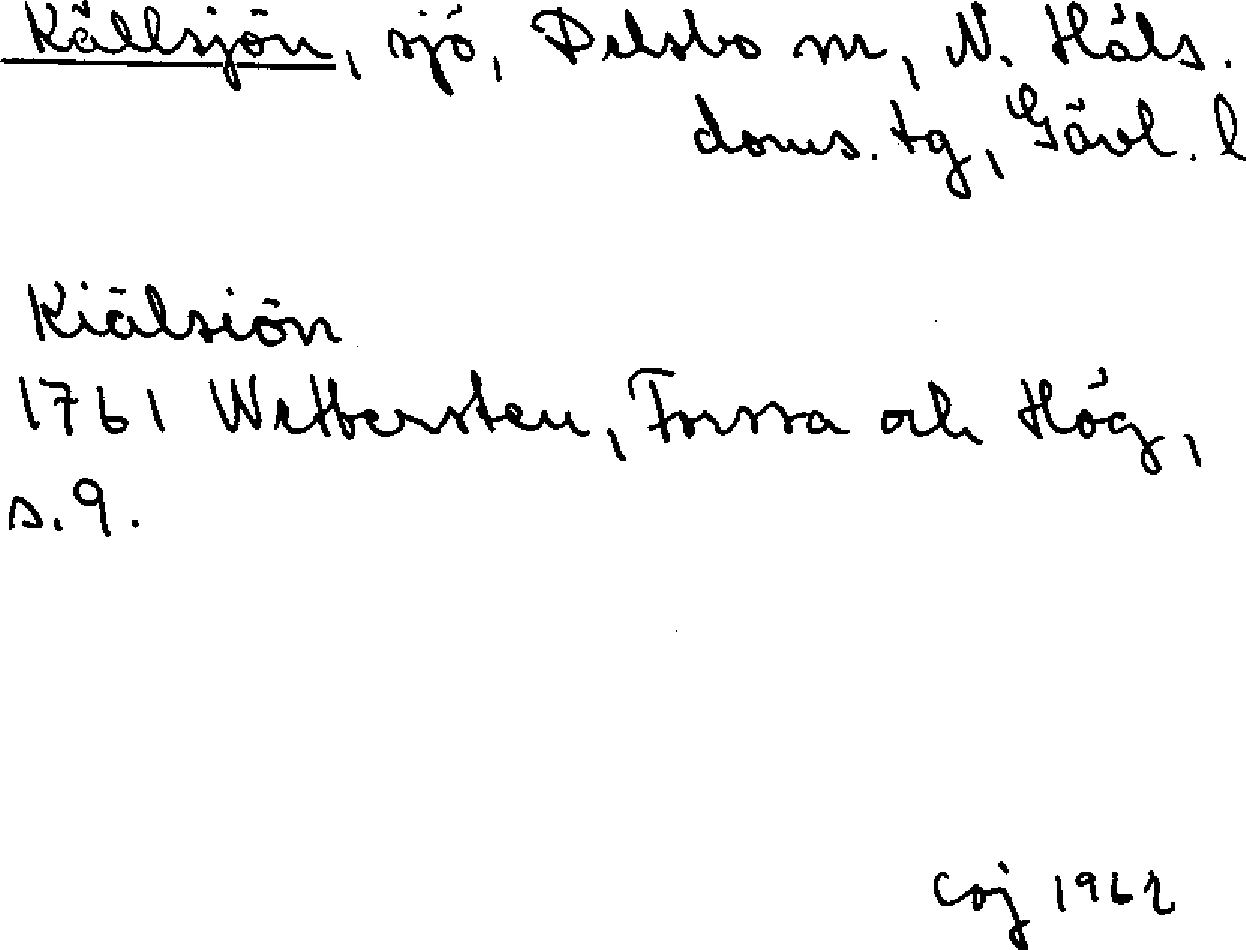 Källsjön, sjö, Delsbo sn, N. Häls.
doms. tg, Gävl. l
Kiälsiön
1761 Wettersten, Forssa och Hög,
s. 9.
Coj 1962